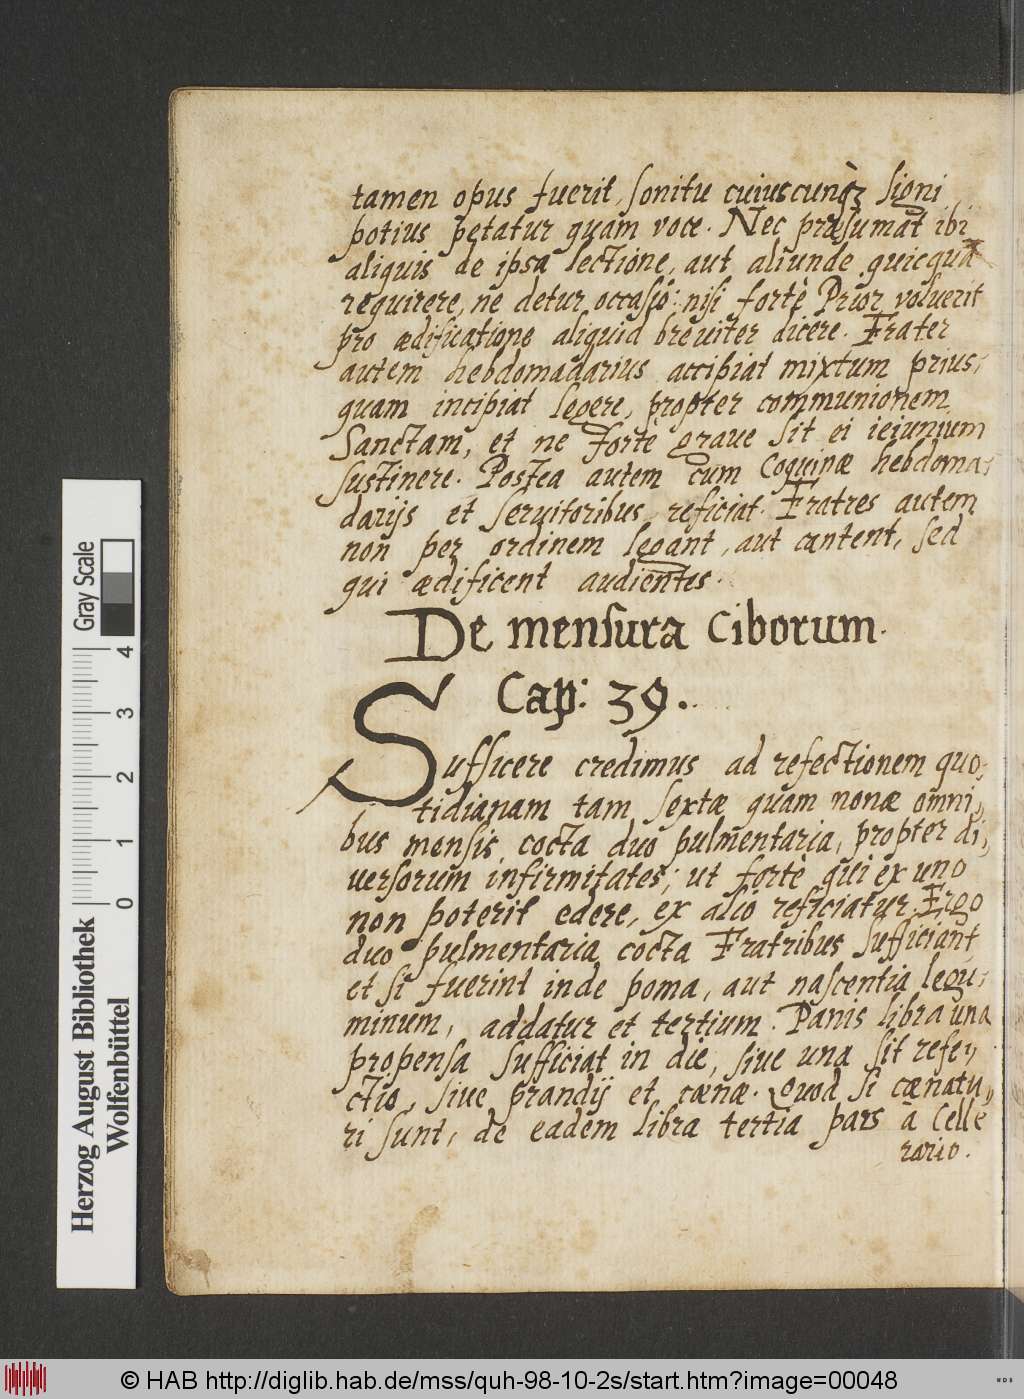 tamen opus fuerit, sonitu cuiuscunqꝫ signi
potius petatur quam voce. Nec præsumat ibi
aliquis de ipsa lectione, aut aliunde quicquā
requirere, ne detur occasio: nisi fortè Prior voluerit
pro ædificatione aliquid breuiter dicere. Frater
autem hebdomadarius accipiat mixtum prius,
quam incipiat legere, propter communionem
Sanctam, et ne fortè graue sit ei ieiunium
sustinere. Postea autem cum Coquinæ hebdoma,
darijs et seruitoribus reficiat. Fratres autem
non per ordinem legant, aut cantent, sed
qui ædificent audientes.
De mensura Ciborum.
Cap: 39.
Sufficere credimus ad refectionem quo,
tidianam tam sextæ quam nonæ omni,,
bus mensis, cocta duo pulmentaria, propter di,,
uersorum infirmitates; ut fortè qui ex uno
non poterit edere, ex alio reficiatur. Ergo
duo pulmentaria cocta Fratribus sufficiant
et si fuerint inde poma, aut nascentia legu,
minum, addatur et tertium. Panis libra una
propensa sufficiat in die, siue una sit refe,,
ctio, siue prandij et cœnæ. Quod si cænatu,,
ri sunt, de eadem libra tertia pars à Celle
rario.
Herzog August Bibliothek
Wolfenbüttel
Gray Scale
0 1 2 3 4
© HAB http://diglib.hab.de/mss/quh-98-10-2s/start.htm?image=00048